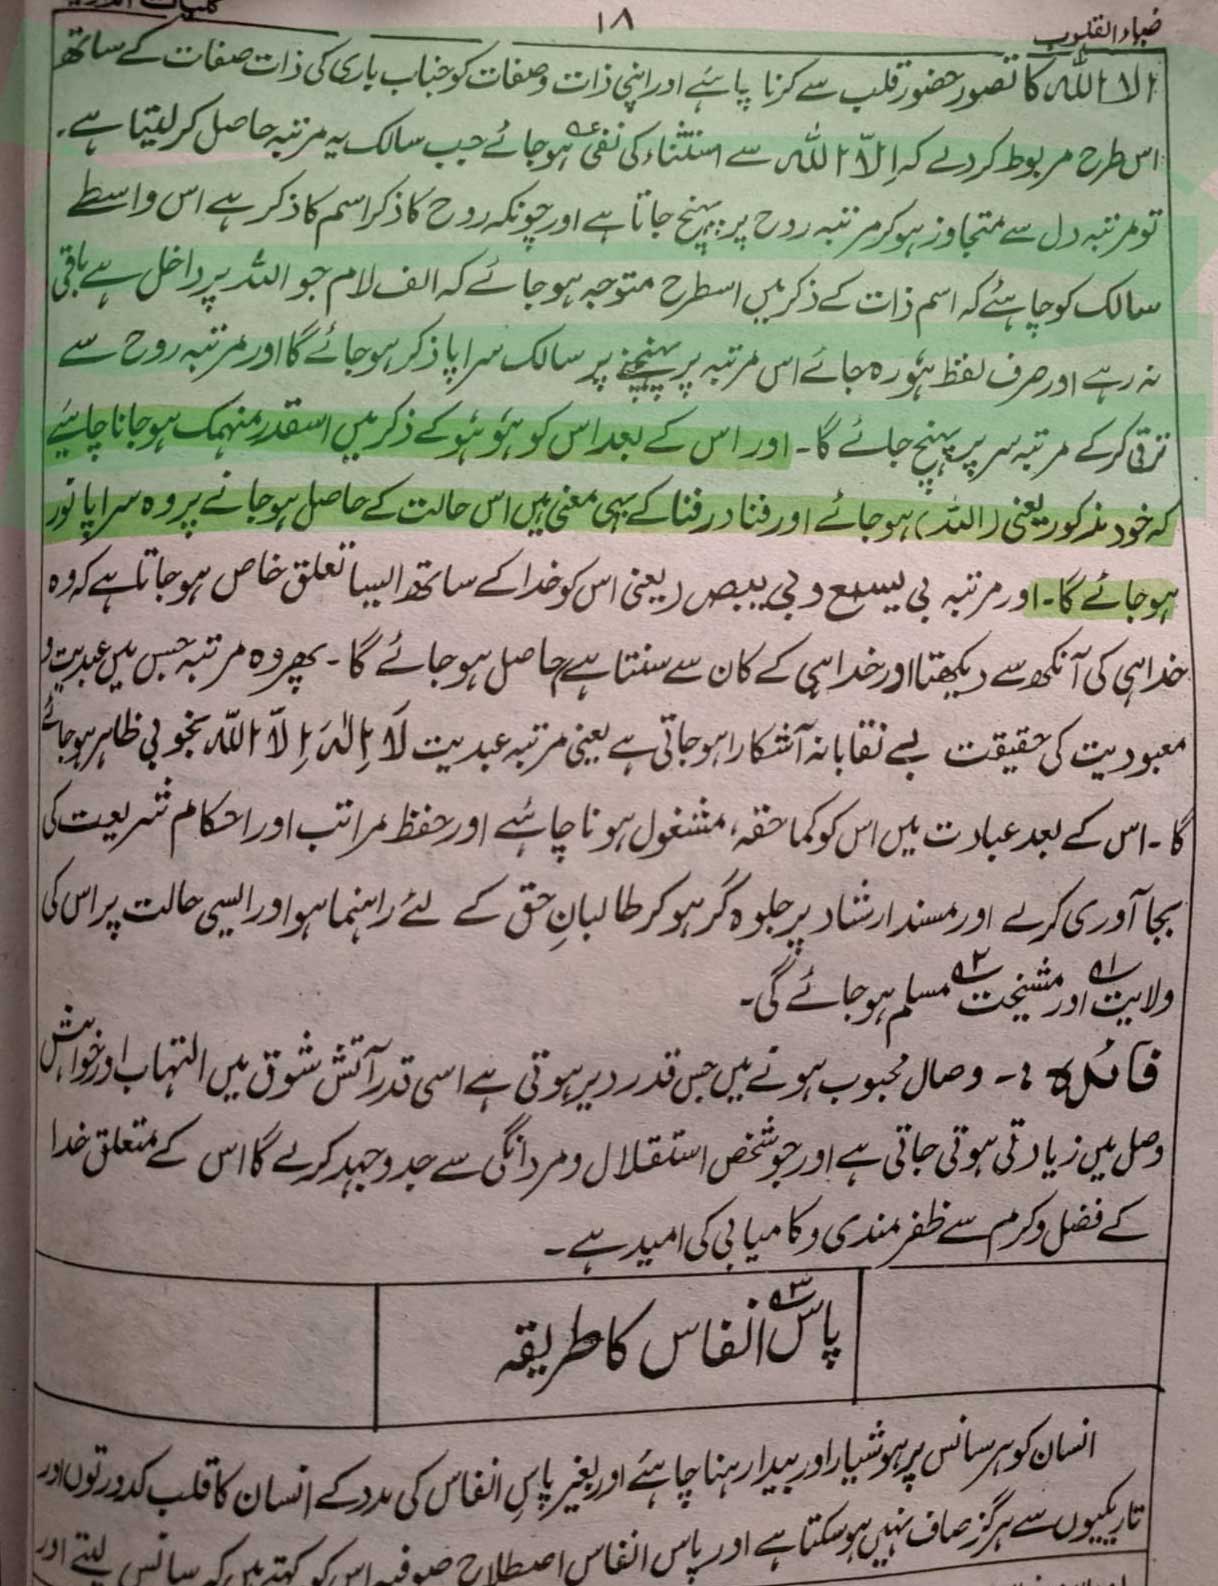 ضیاء القلوب
۱۸
الا اللہ کا تصور حضور قلب سے کرنا چاہئے اور اپنی ذات وصفات کو جناب باری کی ذات صفات کے ساتھ
اس طرح مربوط کردے کہ اِلَّا اللہ سے استثناء کی نفی ہو جائے جب سالک یہ مرتبہ حاصل کر لیتا ہے۔
تو مرتبہ دل سے متجاوز ہو کر مرتبہ روح پر پہنچ جاتا ہے اور چونکہ روح کا ذکر اسم کا ذکر ہے اس واسطے
سالک کو چاہئے کہ اسم ذات کے ذکر میں اسطرح متوجہ ہو جائے کہ الف لام جو اللہ پر داخل ہے باقی
نہ رہے اور صرف لفظ ھُو رہ جائے اس مرتبہ پر پہنچنے پر سالک سراپا ذکر ہو جائے گا اور مرتبہ روح سے
ترقی کر کے مرتبہ سر پر پہنچ جائے گا۔ اور اس کے بعد اس کو ھُو ھُو کے ذکر میں اسقدر منہمک ہو جانا چاہئے
کہ خود مذکور یعنی (اللہ) ہو جائے اور فنا در فنا کے یہی معنی ہیں اس حالت کے حاصل ہو جانے پر وہ سراپا نور
ہو جائے گا۔ اور مرتبہ بی یسمع و بی یبصر (یعنی اس کو خدا کے ساتھ ایسا تعلق خاص ہو جاتا ہے کہ وہ
خدا ہی کی آنکھ سے دیکھتا اور خدا ہی کے کان سے سنتا ہے حاصل ہو جائے گا۔ پھر وہ مرتبہ جس میں عبدیت و
معبودیت کی حقیقت بے نقابانہ آشکارا ہو جاتی ہے یعنی مرتبہ عبدیت لَا اِلٰہَ اِلَّا اللہ بخوبی ظاہر ہو جائے
گا۔ اس کے بعد عبادت میں اس کو کما حقہ، مشغول ہونا چاہئے اور حفظ مراتب اور احکام شریعت کی
بجا آوری کرے اور مسند ارشاد پر جلوہ گر ہو کر طالبانِ حق کے لئے راہنما ہو اور ایسی حالت پر اس کی
ولایت ۱ اور مشیخت ۲ مسلم ہو جائے گی۔
فائدہ :۔ وصال محبوب ہونے میں جس قدر دیر ہوتی ہے اسی قدر آتش شوق میں التہاب اور خواہش
وصل میں زیادتی ہوتی جاتی ہے اور جو شخص استقلال و مردانگی سے جدوجہد کرے گا اس کے متعلق خدا
کے فضل وکرم سے ظفر مندی و کامیابی کی امید ہے۔
پاس ۳ انفاس کا طریقہ
انسان کو ہر سانس پر ہوشیار اور بیدار رہنا چاہئے اور بغیر پاسِ انفاس کی مدد کے انسان کا قلب کدورتوں اور
تاریکیوں سے ہرگز صاف نہیں ہو سکتا ہے اور پاس انفاس اصطلاح صوفیہ اس کو کہتے ہیں کہ سانس لیتے اور